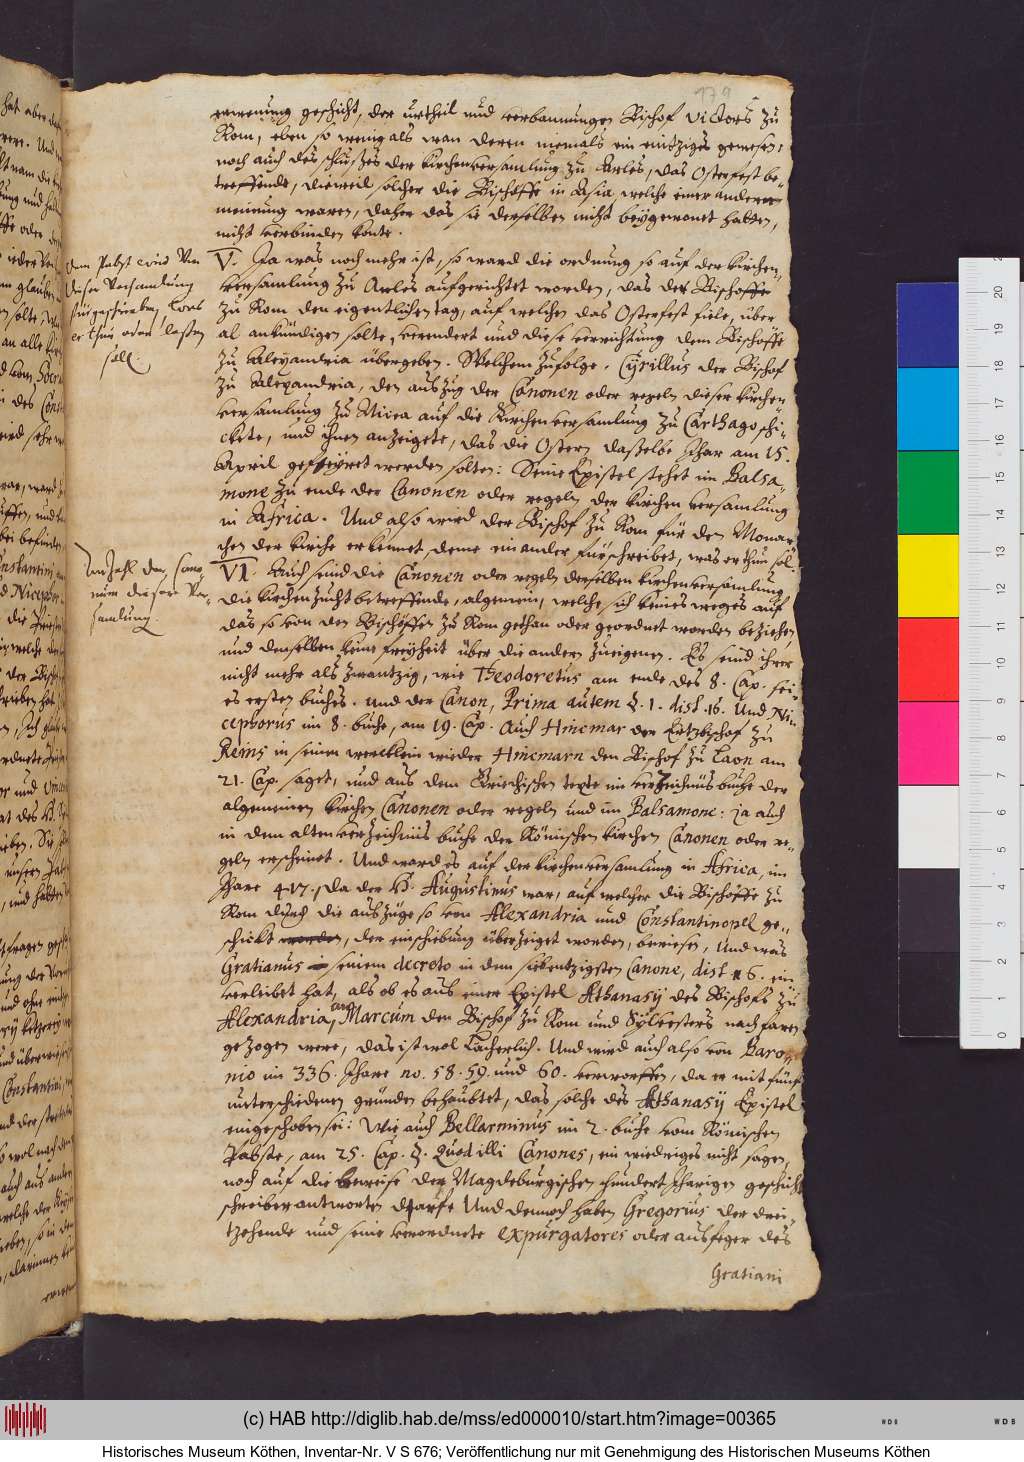 179
erwenung geschicht, der urtheil und verbannungen Bischof Victors zu
Rom, eben so wenig als wan deren niemals ein eintziges gewesen,
noch auch des schlußes der kirchenversamlung zu Arles, das Osterfest be-
treffende, dieweil solcher die Bischöffe in Asia, welche einer anderen
meinung waren, daher das sie derselben nicht beygewonet hatten,
nicht verbinden konte.
V. Ja was noch mehr ist, so ward die ordnung so auf der kirchen-
versamlung zu Arles aufgerichtet worden, das der Bischoffe
zu Rom den eigentlichen tag, auf welchen das Osterfest fiele, über
al ankündigen solte, verendert und diese verrichtung dem Bischoffe
zu Alexandria übergeben. Welchem zufolge, Cÿrillus der Bischof
zu Alexandria, den auszug der Canonen oder regeln dieser kirchen
versamlung zu Nicea auf die Kirchenversamlung zu Carthago schi-
ckete, und ihnen anzeigete, das die Ostern daßelbe Jhar am 15.
April gefeyret werden solten: Seine Epistel stehet im Balsa-
mone zu ende der Canonen oder regeln der kirchen versamlung
in Africa. Und also wird der Bischof zu Rom für den Monar
chen der kirche erkennet, deme ein ander fürschreibet, was er thun sol.
VI. Auch seind die Canonen oder regeln derselben kirchenversamlung
die kirchenzucht betreffende, algemein, welche sich keines weges auf
das so von den Bischöffen zu Rom gethan oder geordnet worden beziehen,
und denselben keine freyheit über die andern zueigenen. Es seind ihrer
nicht mehr als zwantzig, wie Theodoretus am ende des 8. Cap. sei-
es ersten buches. und der Canon, Prima autem §. 1. dist. 16. Und Ni-
cephorus im 8. buche, am 19. Cap. Auch Hincmar der Ertzbischof zu
Reims in seinem wercklein wieder Hincmarn den Bischof zu Laon am
21. Cap. saget, und aus dem Griechischen texte im verzeichnüs buche der
algemeinen kirchen Canonen oder regeln und im Balsamone: ja auch
in dem alten verzeichnüs buche der Römischen kirchen Canonen oder re-
geln erscheinet. Und ward es auf der kirchenversamlung in Africa, im
Jhare 417. da der H. Augustinus war, auf welcher die Bischoffe zu
Rom durch die auszüge so von Alexandria und Constantinopel ge-
schickt worden, der einschiebung überzeiget worden, beweisen, Und was
Gratianus seinem decreto in dem siebentzigsten Canone, dist 16. ein
verleibet hat, als ob es aus einer Epistel Athanasÿ des Bischofs zu
Alexandria, an Marcum den Bischof zu Rom und Sÿlvesters nachfaren
gezogen were, das ist wol lächerlich. Und wird auch also von Baro-
nio im 336. Jhare no. 58. 59. und 60. verworffen, da er mit fünf
unterschiedenen gründen behaubtet, das solche des Athanasÿ Epistel
eingeschoben sei: Wie auch Bellarminus im 2. buche vom Römischen
Pabste, am 25. Cap. §. Quod illi Canones, ein wiedriges nicht sagen,
noch auf die beweise der Magdeburgischen hundert Jharigen geschicht
schreiber antworten darfe Und dennoch haben Gregorius der drei-
tzehende und seine verordnete expurgatores oder ausfeger des
Gratiani
dem Pabst wird Von
dieser Versamlung
fürgeschrieben, was
er thun oder laßen
soll.
Anzahl der Cano-
num dieser Ver-
samlung.
(c) HAB http://diglib.hab.de/mss/ed000010/start.htm?image=00365
Historisches Museum Köthen, Inventar-Nr. V S 676; Veröffentlichung nur mit Genehmigung des Historischen Museums Köthen